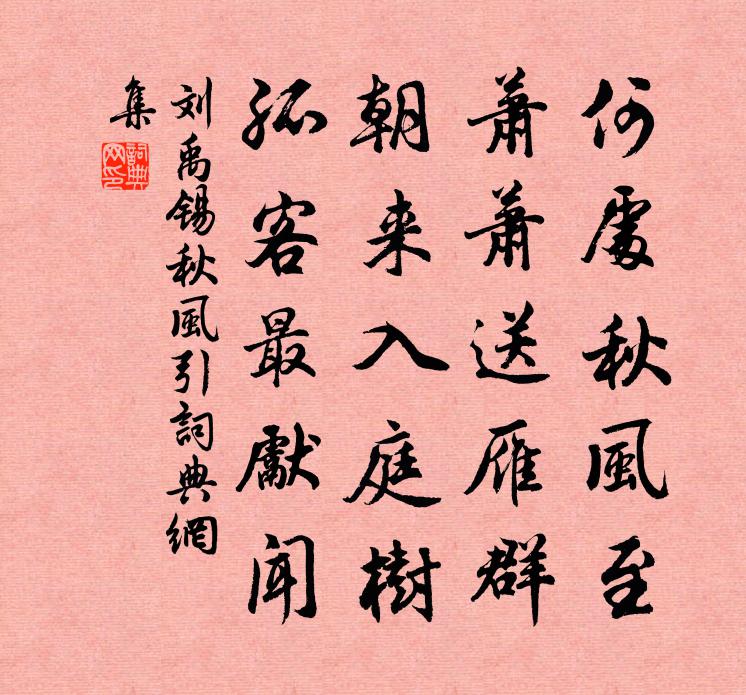 何處秋風至
蕭蕭送雁群
朝来入庭樹
孤客最獻聞
刘禹錫秋風引詞典網
集
詞典
网印